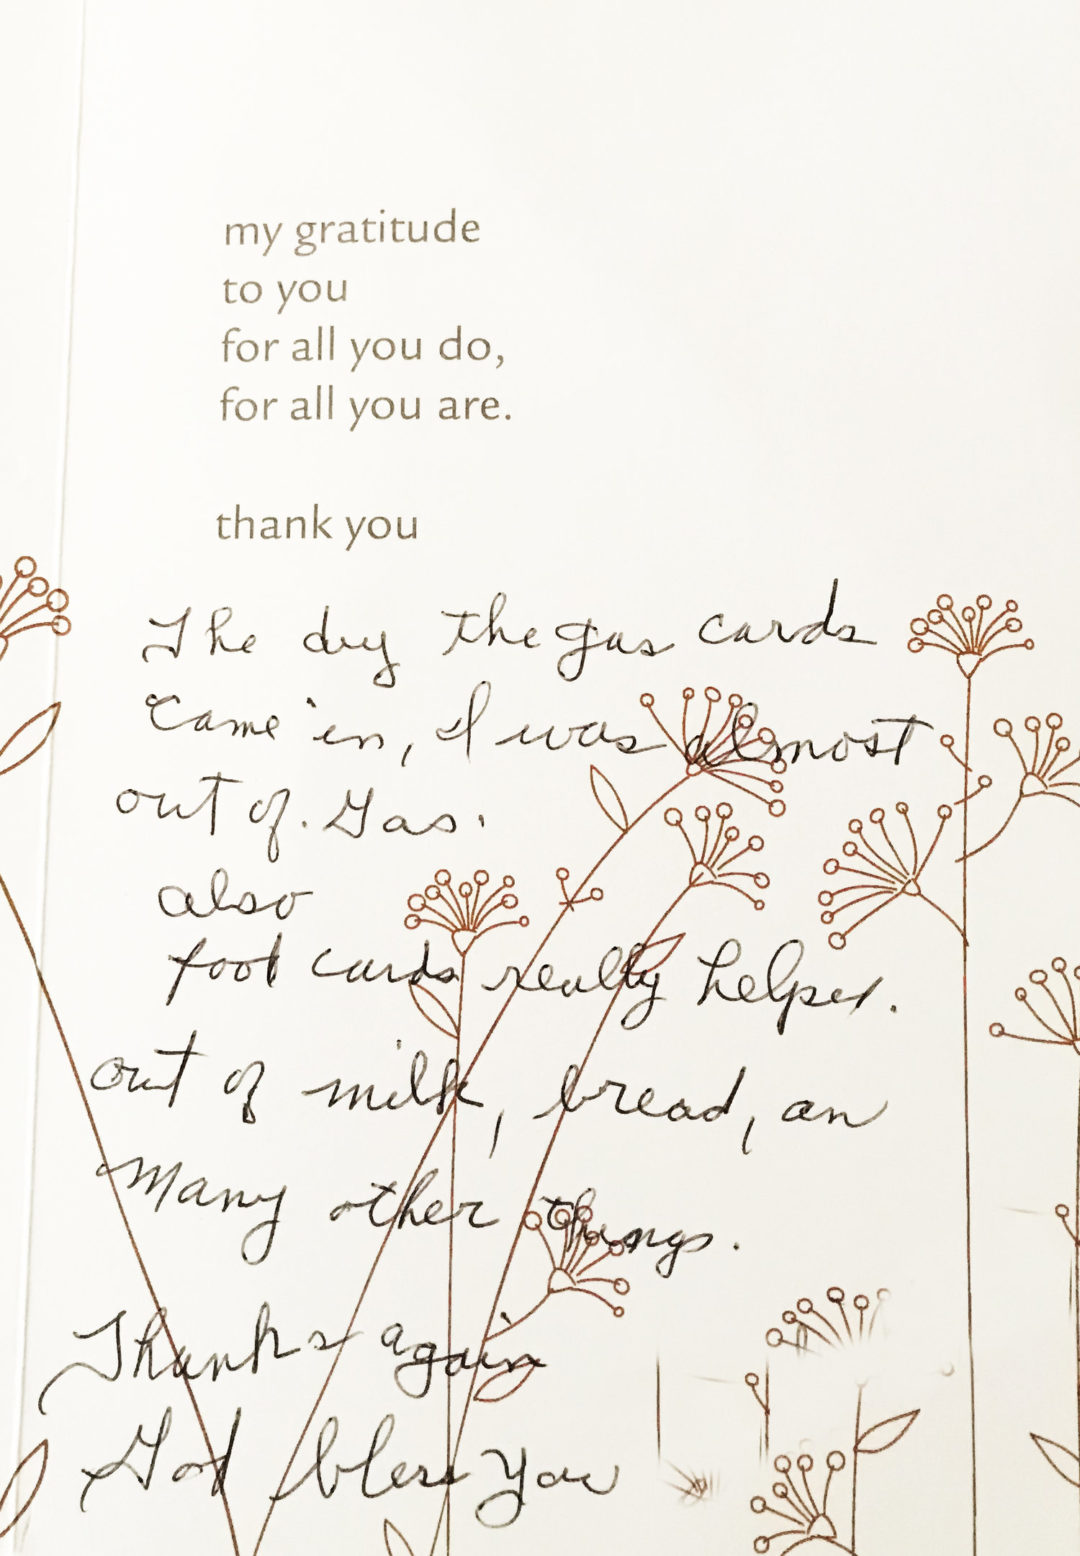 my gratitude
to you
for all you do,
for all you are.
thank you
The day the gas cards
came in, I was almost
out of. Gas.
also
food cards really helped.
out of milk, bread, an
many other things.
Thanks again
God bless you